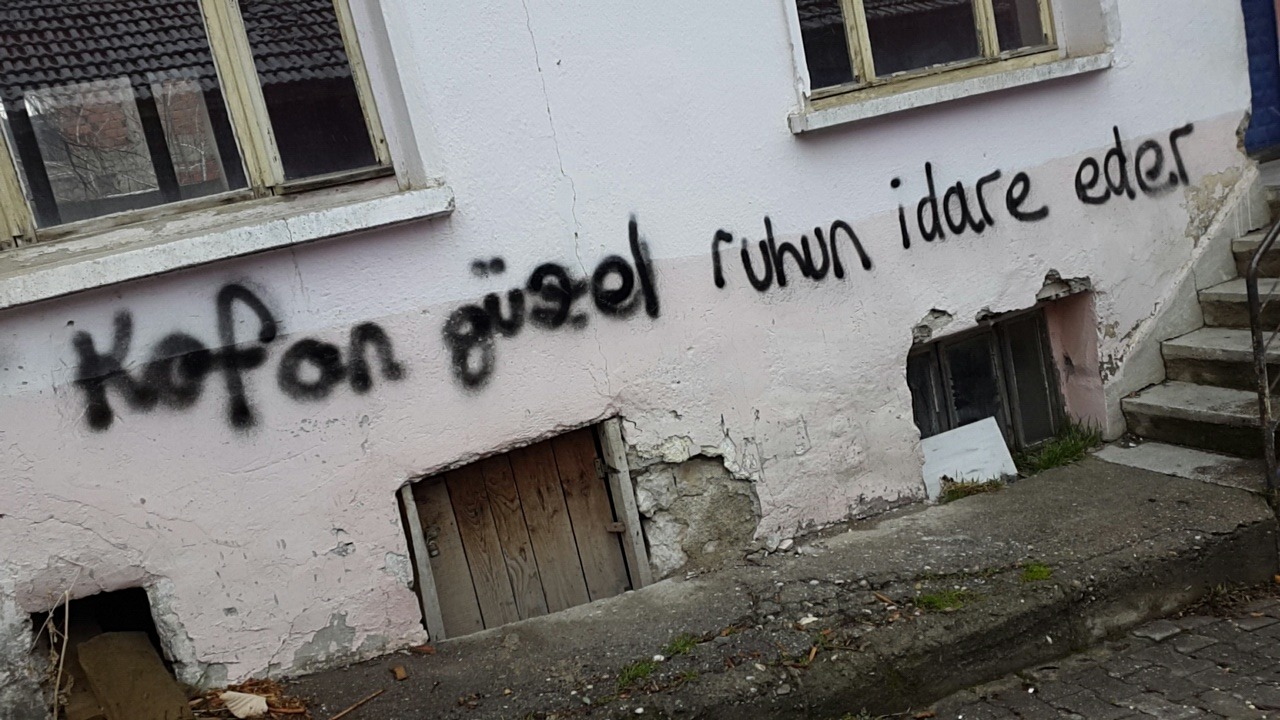 Kafan güzel ruhun idare eder